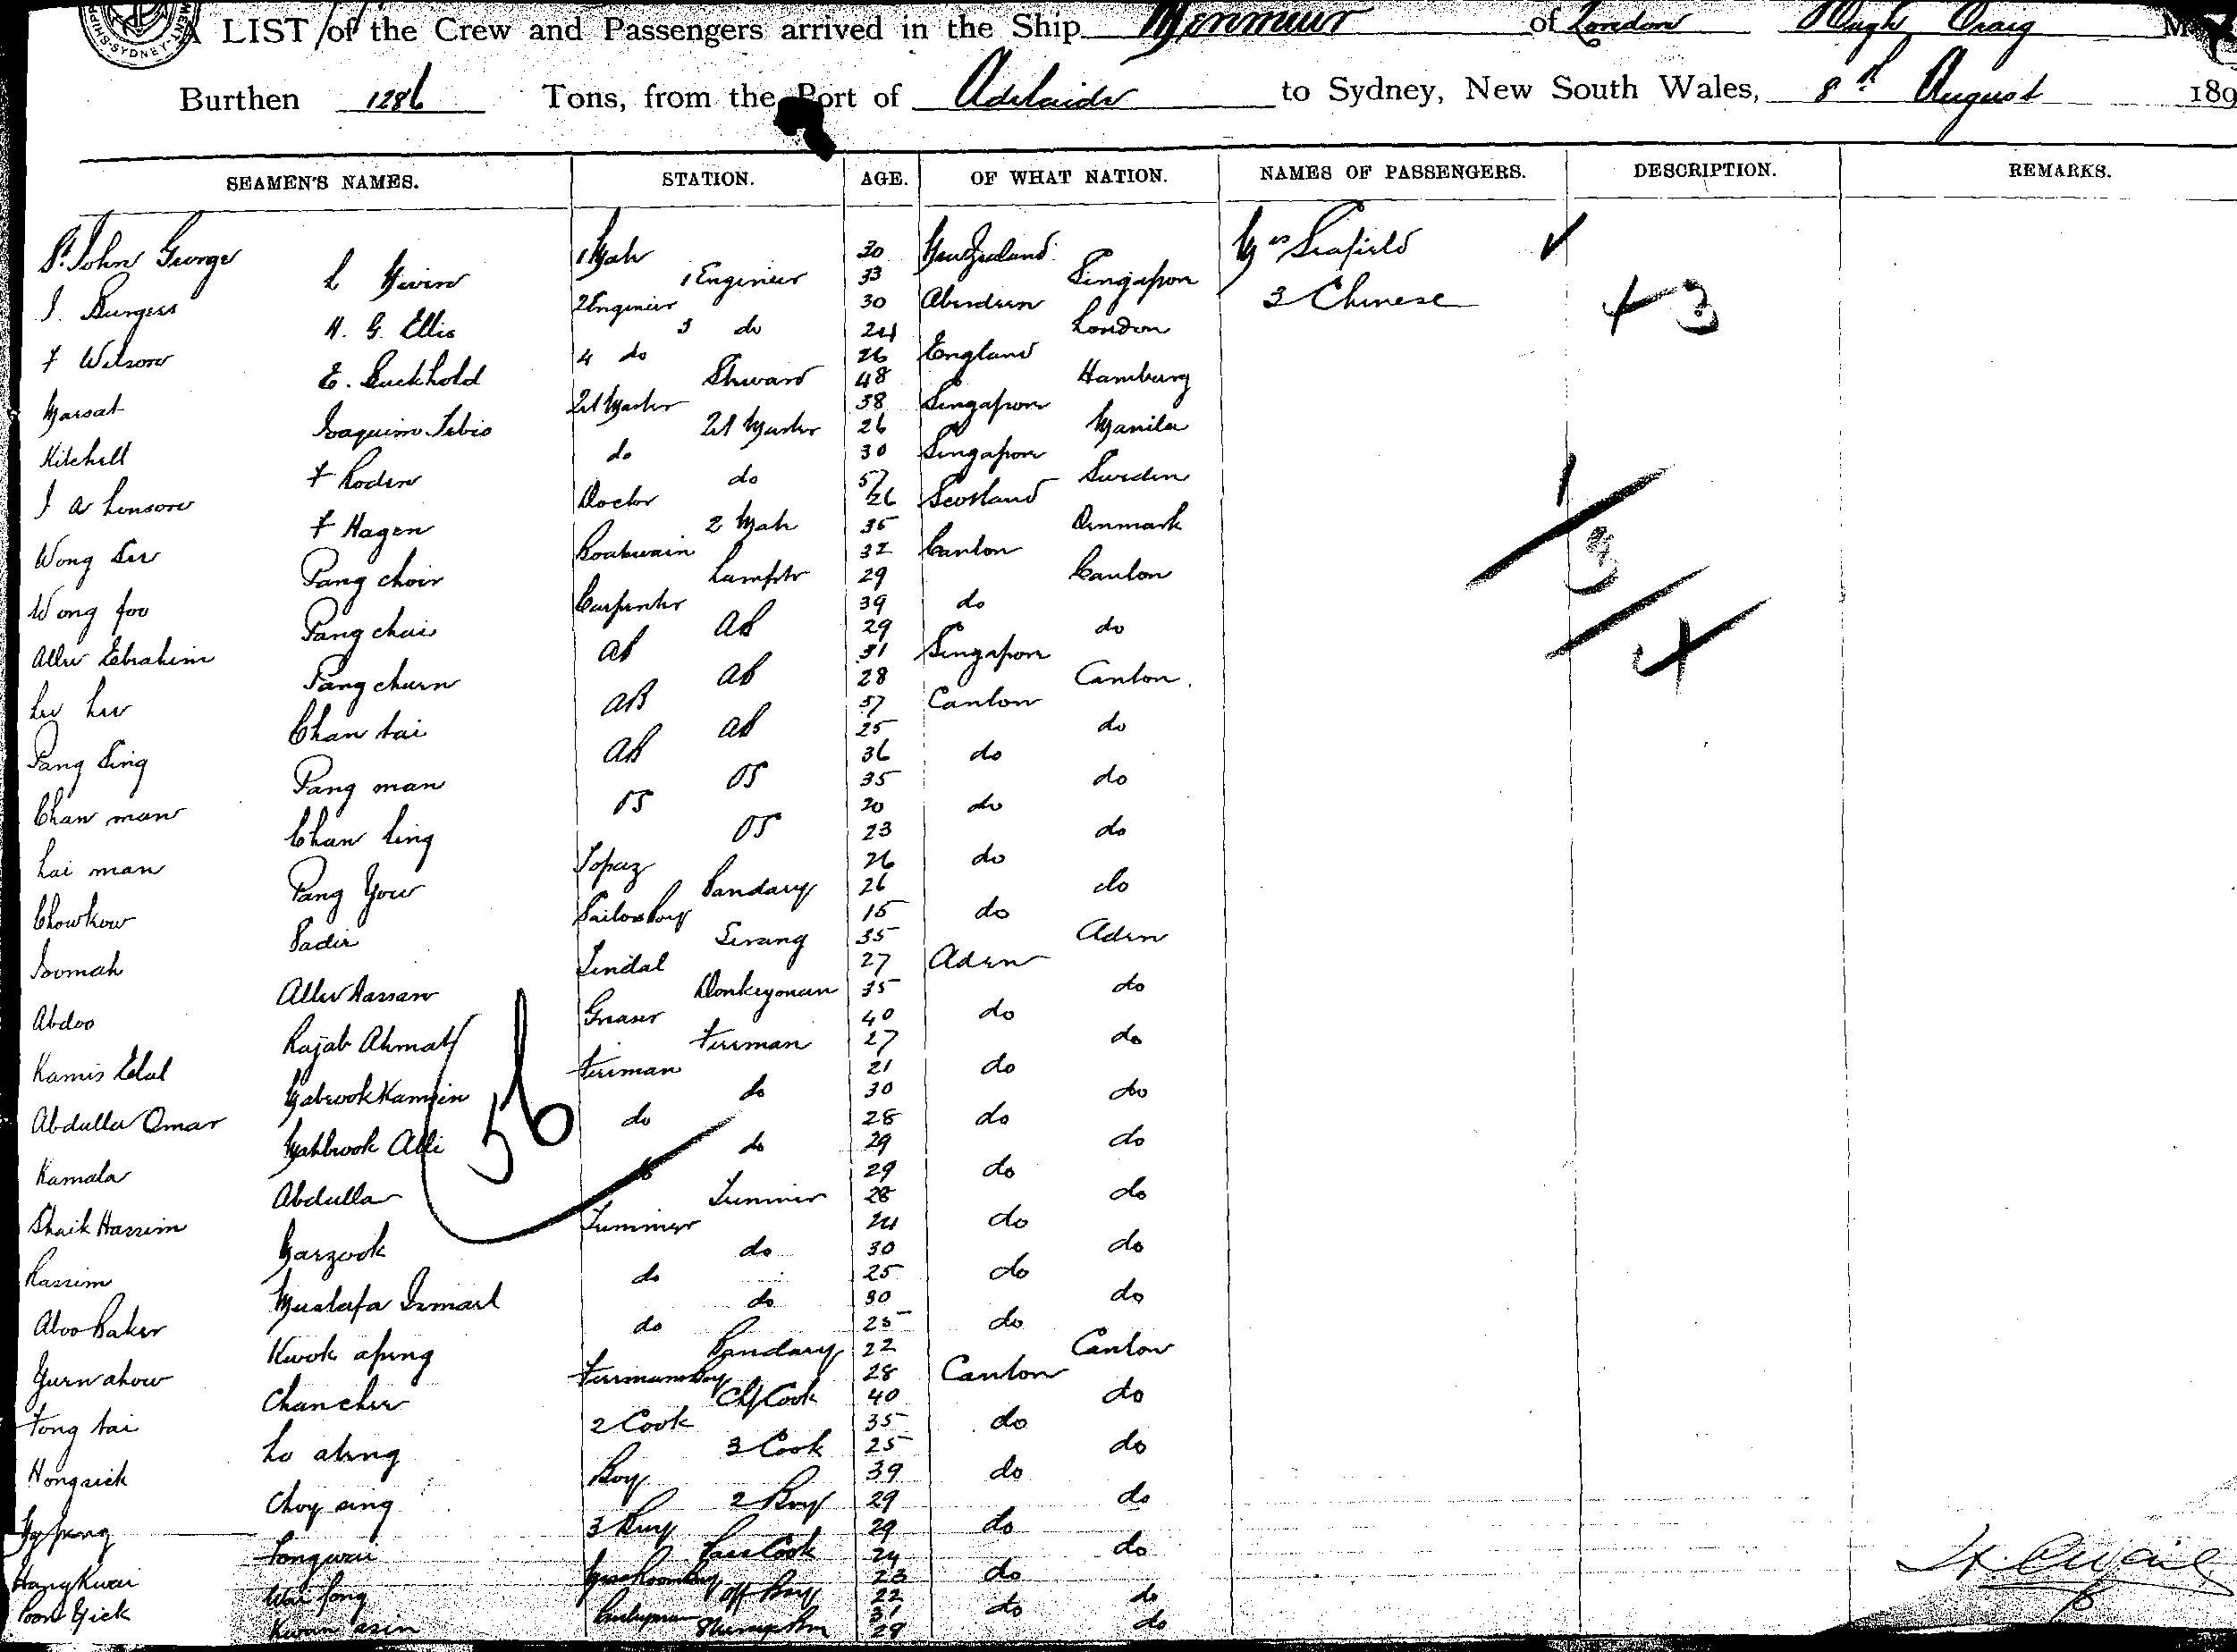 SYDNEY
A LIST of the Crew and Passengers arrived in the Ship Menmuir of London Hugh Craig
Burthen 1286 Tons, from the Port of Adelaide to Sydney, New South Wales, 8th August 189
SEAMEN'S NAMES. STATION. AGE. OF WHAT NATION. NAMES OF PASSENGERS. DESCRIPTION. REMARKS.
St John George 1 Mate 30 New Zealand Mrs Seafield
L 1 Engineer 33 Singapore
J. Burgess 2 Engineer 30 Aberdeen 3 Chinese + 3
H. G. Ellis 3 do 24 London
F Wilson 4 do 26 England
E. Buckhold Steward 48 Hamburg
Marsat 38 Singapore
Joaquim 26 Manila
Kitchell do 30 Singapore
F Roden do 57 Sweden
J a Doctor 26 Scotland
F Hagen 2 Mate 35 Denmark
Wong See Boatswain 32 Canton
Pang choir Lamptr 29 Canton
Wong foo Carpenter 39 do
Pang chai AB 29 do
Allee Ebrahim AB 31 Singapore
Pang churn AB 28 Canton
AB 37 Canton
Chan tai AB 25 do
Pang Sing AB 36 do
Pang man OS 35 do
Chan man OS 20 do
Chan ling OS 23 do
Lai man Topaz 26 do
Pang Yow Bandary 26 do
Chowkow Sailors boy 15 do
Sadie Serang 35 Aden
Soomah Tindal 27 Aden
Allee Hassan Donkeyman 35 do
Abdoo Greaser 40 do
Rajab Ahmat Fireman 27 do
Kamis Fireman 21 do
do 30 do
Abdulla Omar do 28 do
Mahbrook Alli do 29 do
56
Kamala do 29 do
Abdulla Trimmer 28 do
Shaik Hassim Trimmer 24 do
Marzook do 30 do
Kassim do 25 do
Mustafa Ismail do 30 do
Aboo Baker do 25 do
Kwok Bandary 22 Canton
Firemans Boy 28 Canton
Chan chee Chf Cook 40 do
Fong tai 2 Cook 35 do
3 Cook 25 do
Hong sick Boy 39 do
Choy sing 2 Boy 29 do
3 Boy 29 do
Tongwai Cook 24 do
23 do
Wai fong Off Boy 22 do
Poon Yick Pantryman 31 do
29 do
1
3
4
H. Craig